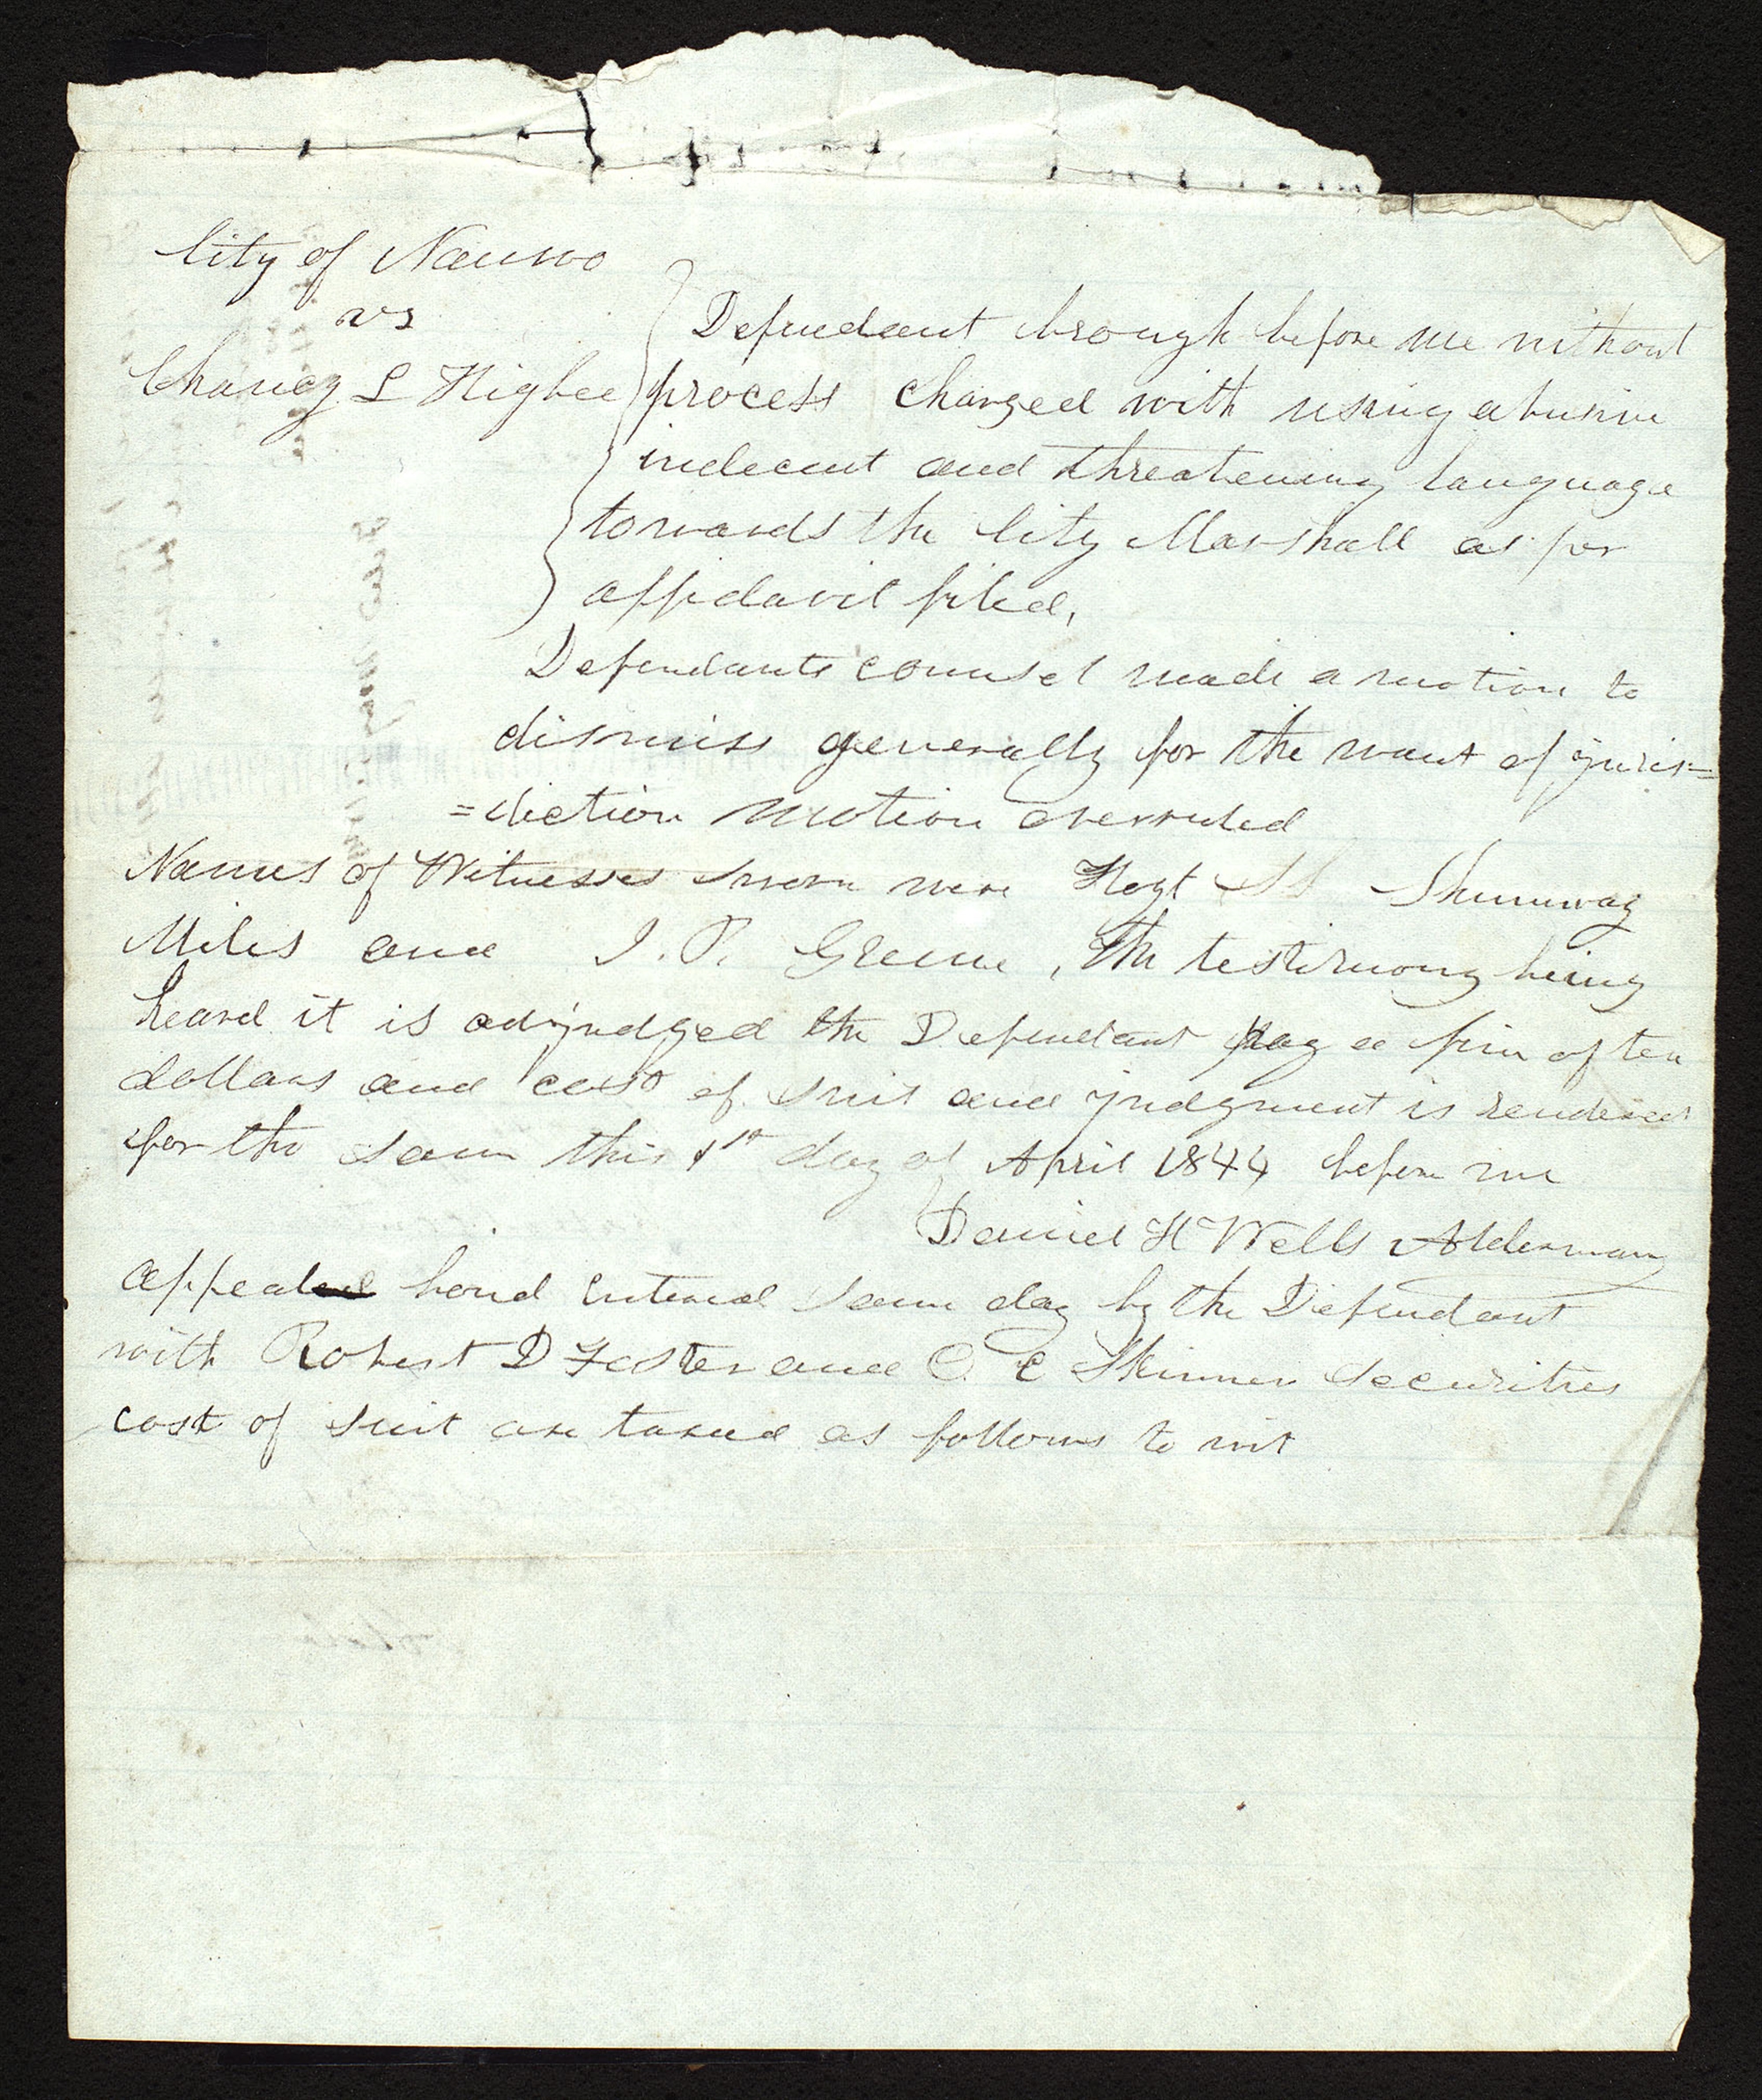 City of Nauvoo
vs
Chancy L Higbee
Defendant brough before me without
process charged with using abusive
indecent and threatening language
towards the City Marshall as per
affidavit filed,
Defendants counsel made a motion to
dismiss generally for the want of juris=
=diction motion overruled
Names of Witnesses sworn were Hoyt Shumway
Miles and J. P. Greene, the testimony being
heard it is adjudged the Defendant pay a fine of ten
dollars and cost of suit and judgment is rendered
for the same this 1st day of April 1844 before me
Daniel H Wells Alderman
appeal bond entered same day by the Defendant
with Robert D Foster and O. C Skinner securities
cost of suit are taxed as follows to wit